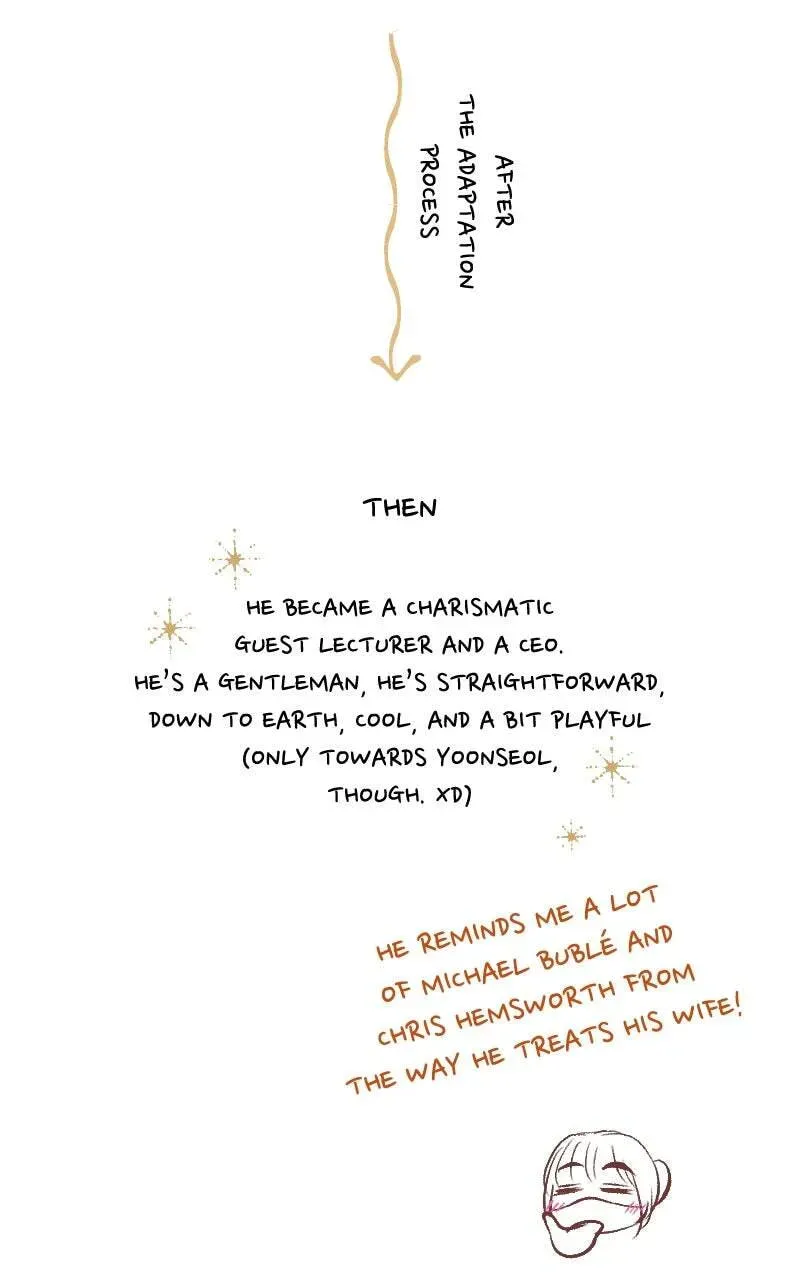 AFTER
THE ADAPTATION
PROCESS
THEN
HE BECAME A CHARISMATIC
GUEST LECTURER AND A CEO.
HE'S A GENTLEMAN, HE'S STRAIGHTFORWARD,
DOWN TO EARTH, COOL, AND A BIT PLAYFUL
(ONLY TOWARDS YOONSEOL,
THOUGH. XD)
HE REMINDS ME A LOT
OF MICHAEL BUBLÉ AND
CHRIS HEMSWORTH FROM
THE WAY HE TREATS HIS WIFE!